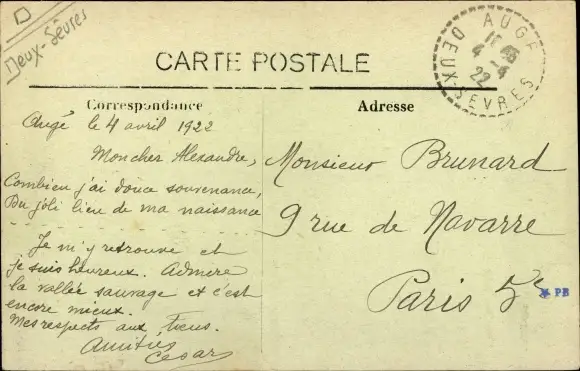 D
Deux-Sèvres
CARTE POSTALE
AUGÉ
4 -4
22
DEUX-SEVRES
Correspondance
Adresse
Augé le 4 avril 1922
Mon cher Alexandre,
Combien j'ai douce souvenance,
Du joli lieu de ma naissance
Je m'y retrouve et
je suis heureux. Admire
la vallée sauvage et c'est
encore mieux.
Mes respects aux tiens.
Amitiés
Cesar
Monsieur Brunard
9 rue de Navarre
Paris 5e
PB